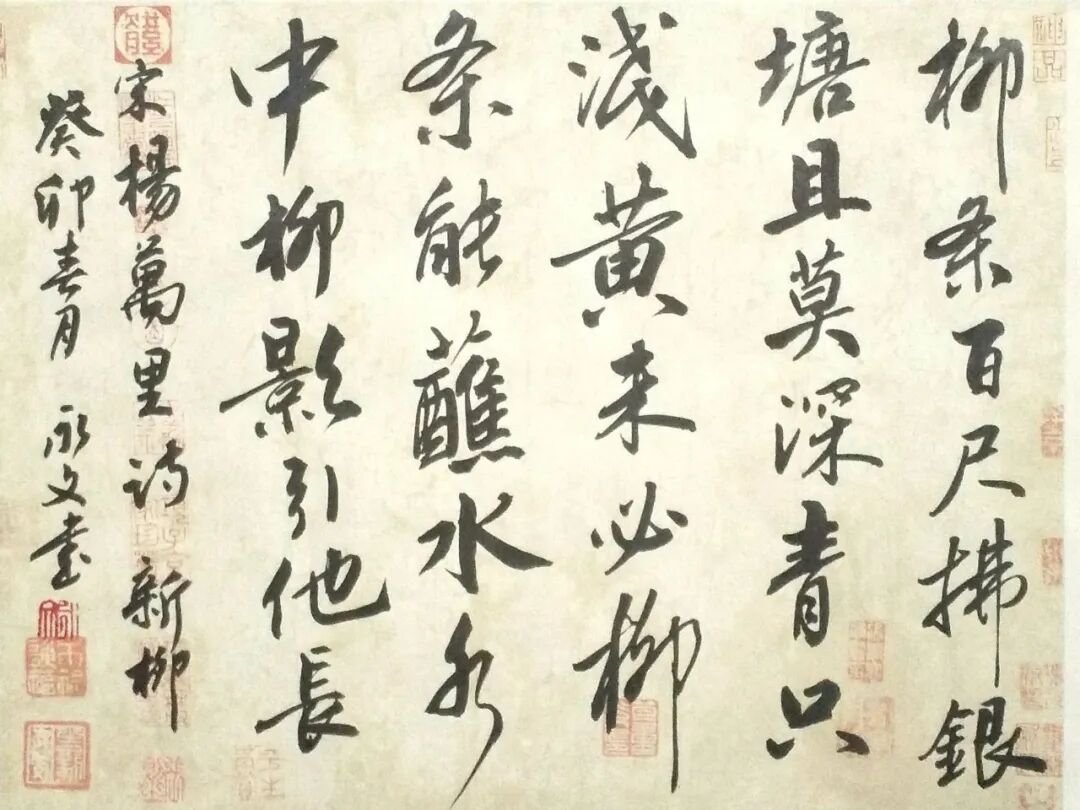 柳条百尺拂銀
塘且莫深青只
浅黄未必柳
条能蘸水水
中柳影引他長
宋楊萬里詩新柳
癸卯春月 永文書